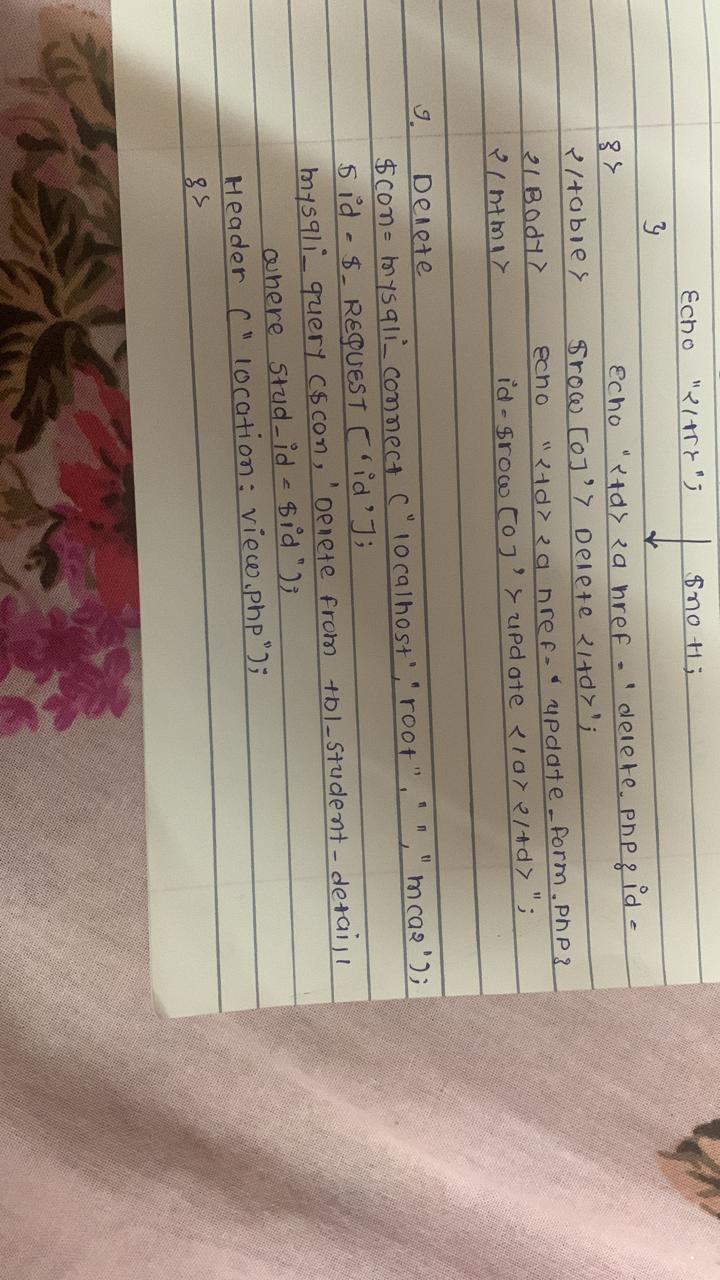 Echo "</tr>"; $no++;
}
Echo "<td> <a href = 'delete.php?id=
?>
</table> $row[0]'> Delete </td>";
</Body> echo "<td> <a href='update_form.php?
</html> id=$row[0]'> update </a> </td>";
9. Delete
$con= mysqli_connect ("localhost","root", "", "mca2");
$id = $_REQUEST ['id'];
mysqli_query ($con, "Delete from tbl_student_detaill
where stud_id = $id");
Header ("location: view.php");
?>